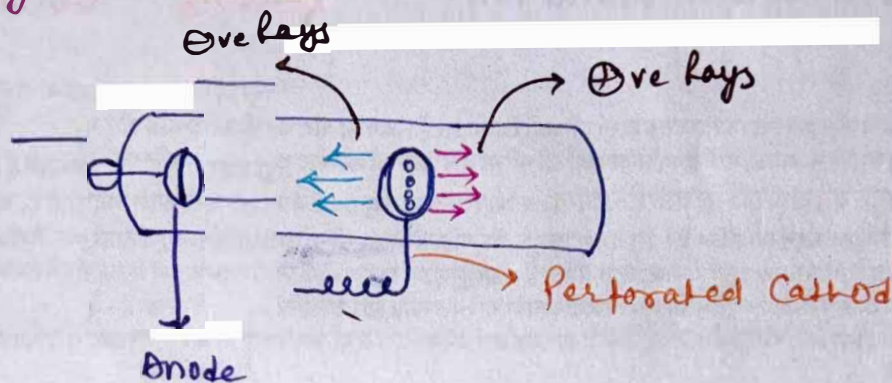 ⊖ve Rays
⊕ve Rays
Perforated Cathod
Anode